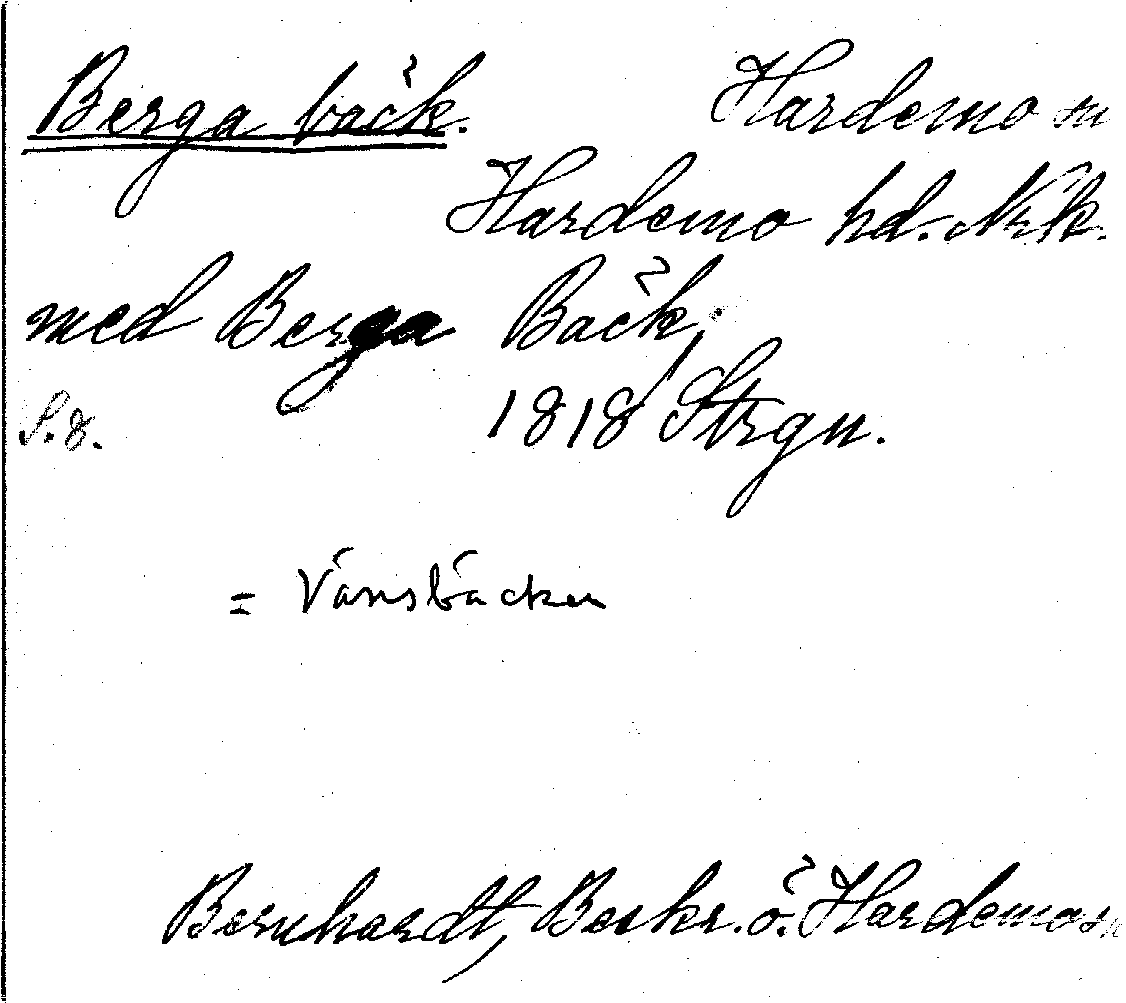 Berga bäck. Hardemo sn
Hardemo hd. Nrk.
med Berga Bäck,
S.8. 1818 Strgn.
= Vänsbäcken
Bernhardt, Beskr. ö. Hardemo sn